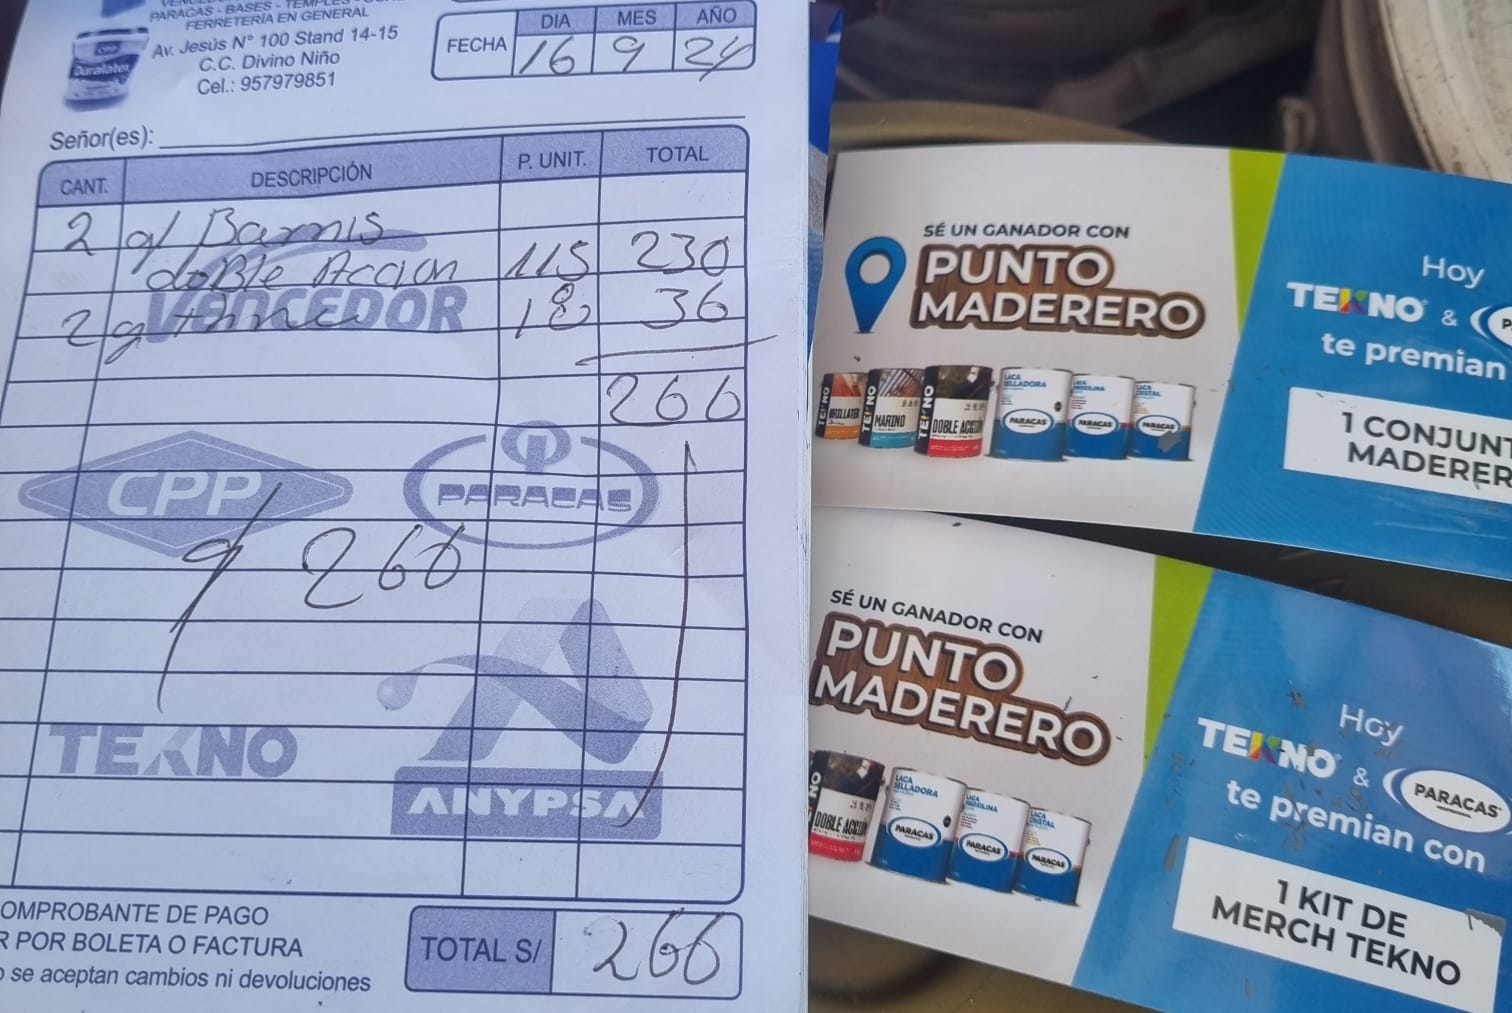 PARACAS - BASES - TEMPLES
FERRETERÍA EN GENERAL
Av. Jesús N° 100 Stand 14-15
C.C. Divino Niño
Cel.: 957979851
CPP
Duralatex
FECHA
DIA MES AÑO
16 9 24
Señor(es):
CANT. DESCRIPCIÓN P. UNIT. TOTAL
2 g/ Barnis
doble Accion 115 230
2 g 18 36
266
VENCEDOR
CPP
PARACAS
266
TEKNO
ANYPSA
OMPROBANTE DE PAGO
R POR BOLETA O FACTURA
o se aceptan cambios ni devoluciones
TOTAL S/ 266
SÉ UN GANADOR CON
PUNTO
MADERERO
TEKNO
TEKNO MARINO
TEKNO DOBLE ACCIÓN
LACA SELLADORA PARACAS
LACA PARACAS
LACA CRISTAL PARACAS
Hoy
TEKNO & P
te premian
1 CONJUNT
MADERER
SÉ UN GANADOR CON
PUNTO
MADERERO
DOBLE ACCIÓN
LACA SELLADORA PARACAS
LACA PARACAS
LACA CRISTAL PARACAS
Hoy
TEKNO & PARACAS
te premian con
1 KIT DE
MERCH TEKNO